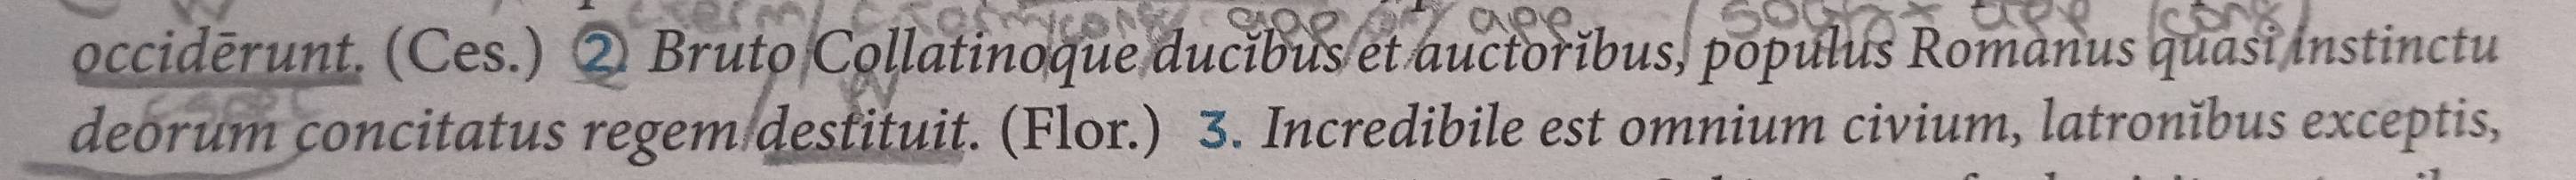 occidērunt. (Ces.) 2. Bruto Collatinoque ducĭbus et auctorĭbus, popŭlus Romanus quasi instinctu
deorum concitatus regem destituit. (Flor.) 3. Incredibile est omnium civium, latronĭbus exceptis,